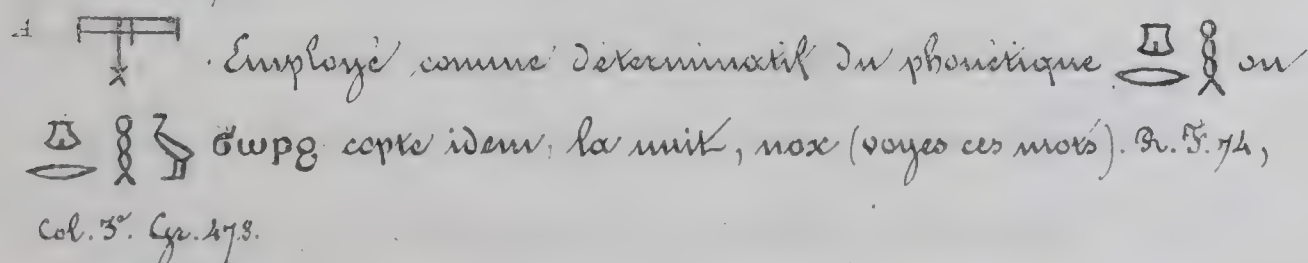 𓇰 . Employé comme déterminatif du phonétique 𓎼𓂋𓎛 ou
𓎼𓂋𓎛𓅱 ϭⲱⲣϩ copte idem, la nuit, nox (voyes ces mots). R. F. 74,
Col. 3ᵉ. Gr. 478.